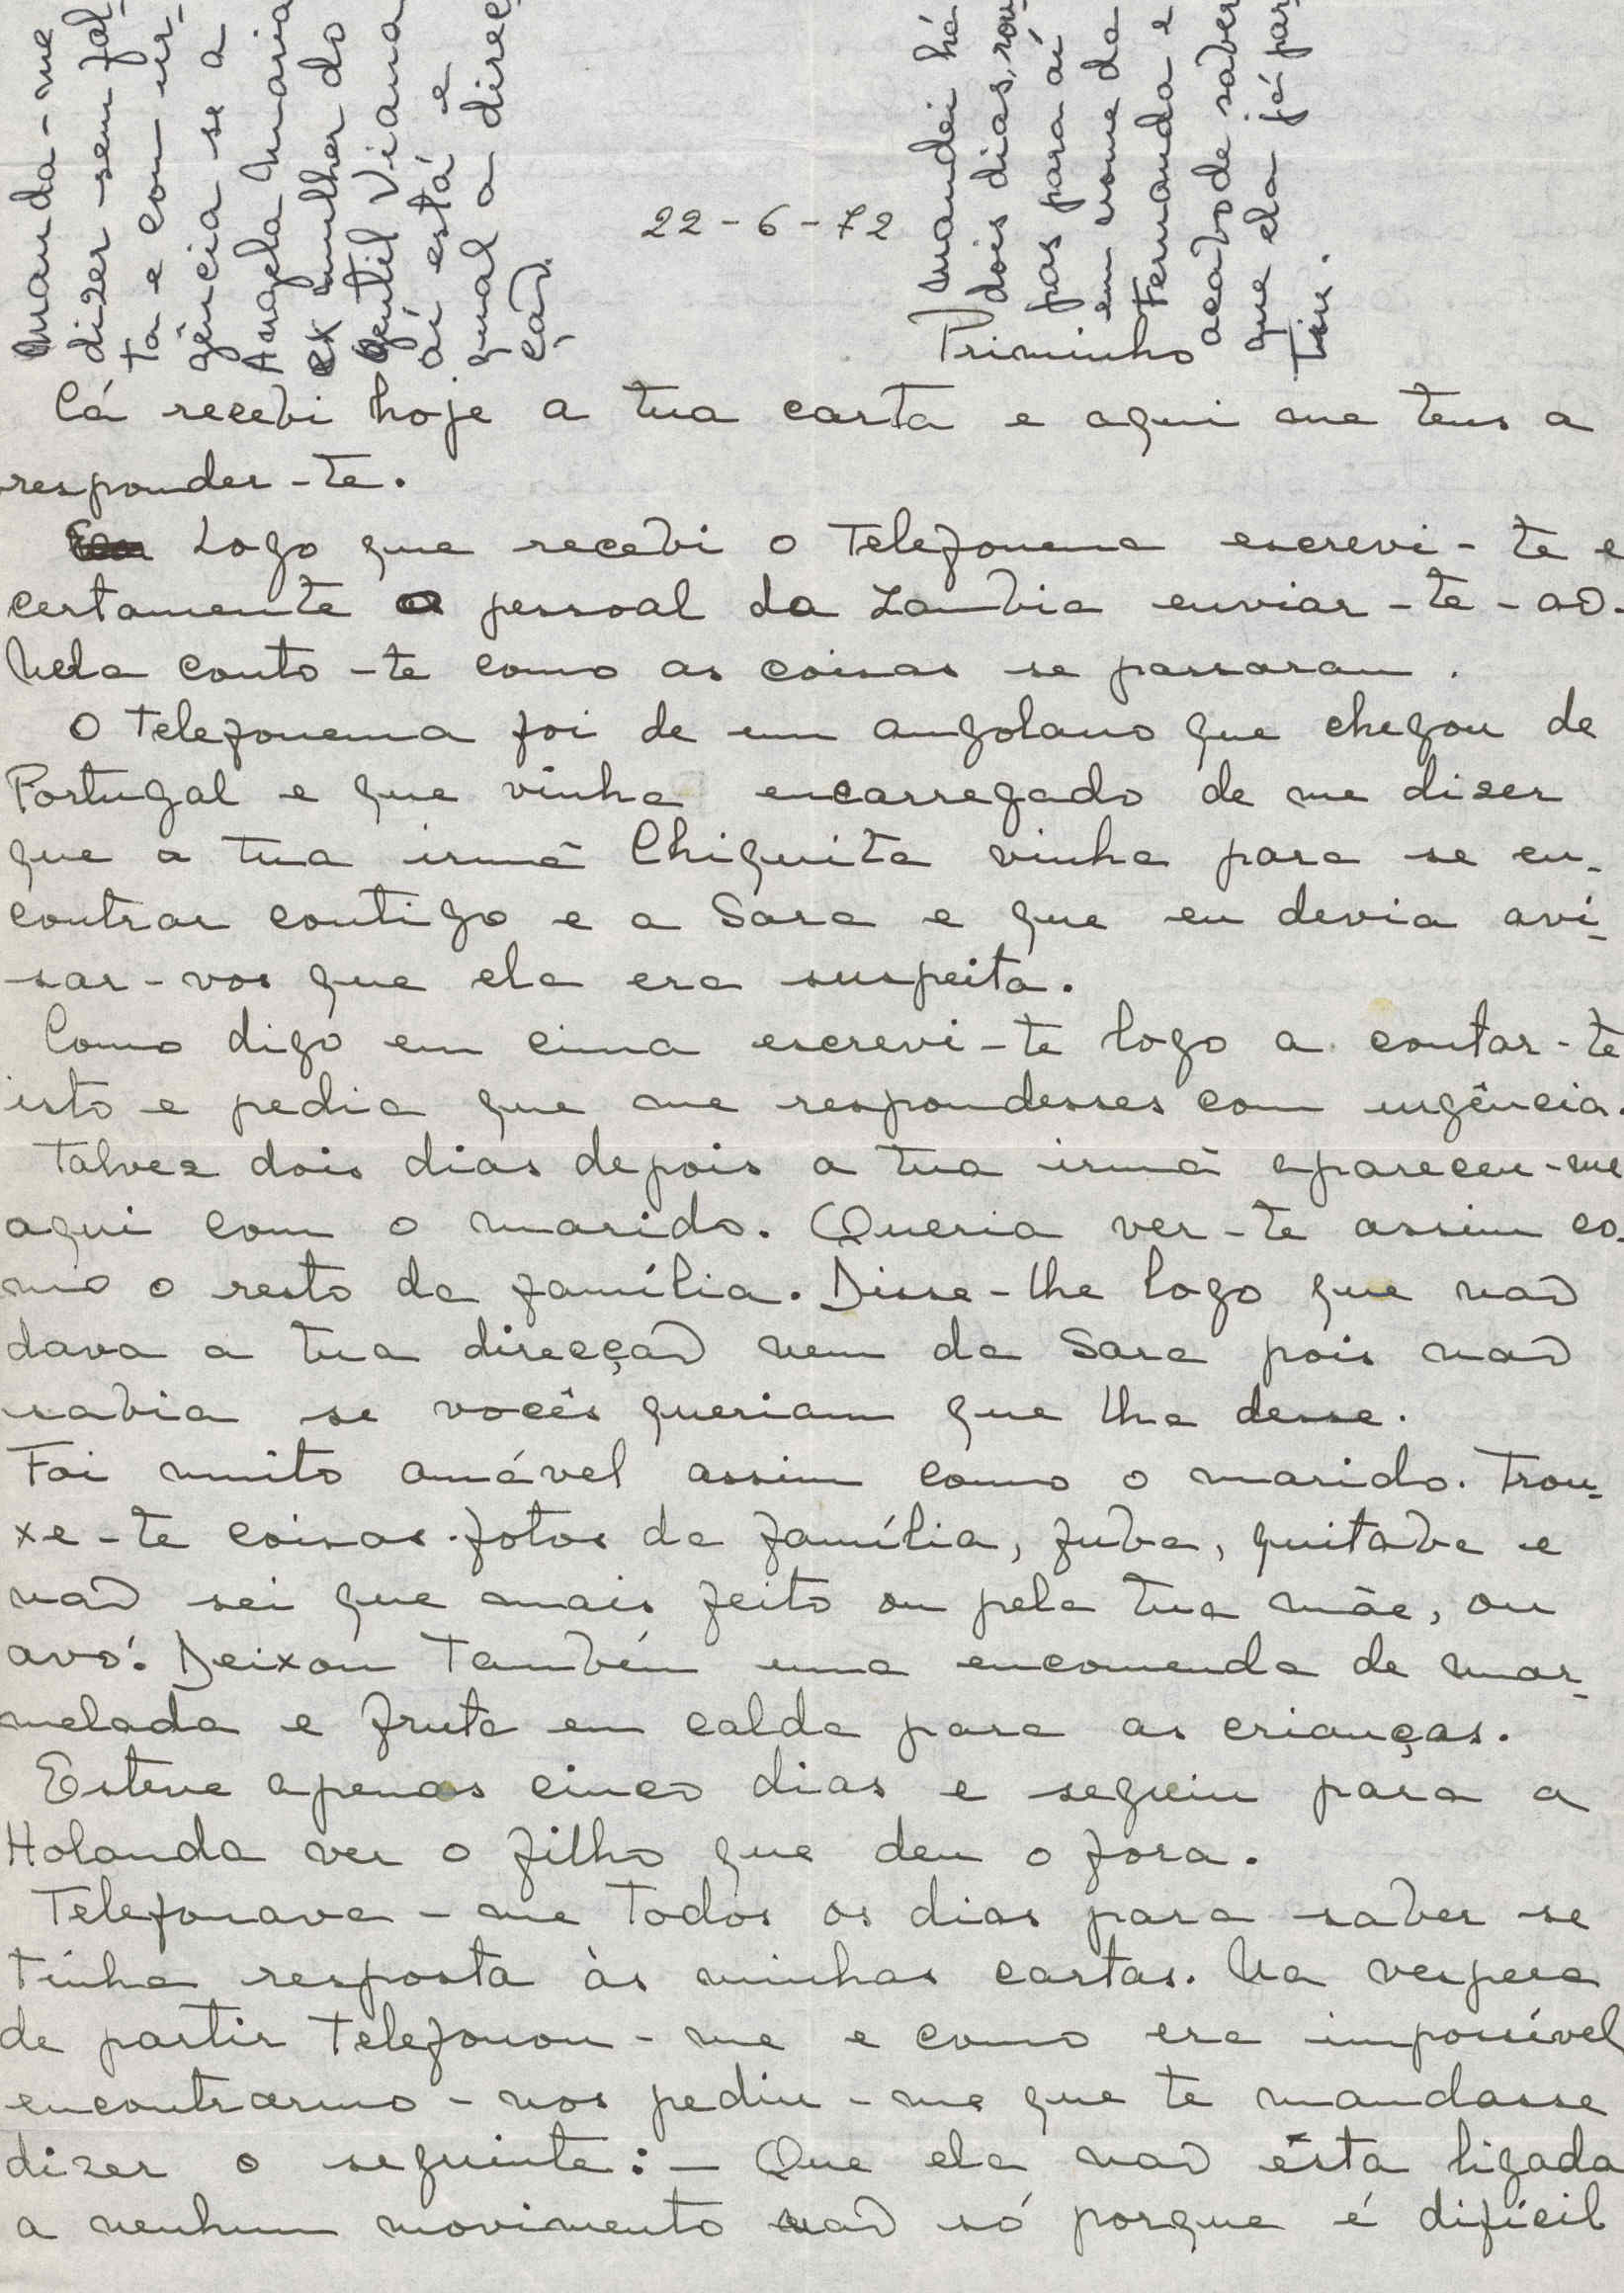 Manda-me
dizer sem fal-
ta e com ur-
gência se a
Angela Maria
ex mulher do
Gentil Viana
aí está e
qual a direc-
ção.
22-6-72
Mandei há
dois dias, rou-
pas para aí
em nome da
Fernanda e
acabo de saber
que ela já par-
tiu.
Priminho
Cá recebi hoje a tua carta e aqui me tens a
responder-te.
Logo que recebi o telefonema escrevi-te e
certamente o pessoal da Zambia enviar-te-ao.
Nela conto-te como as coisas se passaram.
O telefonema foi de um angolano que chegou de
Portugal e que vinha encarregado de me dizer
que a tua irmã Chiquita vinha para se en-
contrar contigo e a Sara e que eu devia avi-
sar-vos que ela era suspeita.
Como digo em cima escrevi-te logo a contar-te
isto e pedia que me respondesses com urgência.
Talvez dois dias depois a tua irmã apareceu-me
aqui com o marido. Queria ver-te assim co-
mo o resto da família. Disse-lhe logo que nao
dava a tua direcçao nem da Sara pois nao
sabia se vocês queriam que lha desse.
Foi muito amável assim como o marido. Trou-
xe-te coisas-fotos da família, fuba, quitaba e
nao sei que mais feito ou pela tua mãe, ou
avó. Deixou também uma encomenda de mar-
melada e fruta em calda para as crianças.
Esteve apenas cinco dias e seguiu para a
Holanda ver o filho que deu o fora.
Telefonava-me todos os dias para saber se
tinha resposta às minhas cartas. Na vespera
de partir telefonou-me e como era impossível
encontrarmo-nos pediu-me que te mandasse
dizer o seguinte: — Que ela nao ésta ligada
a nenhum movimento nao só porque é difícil